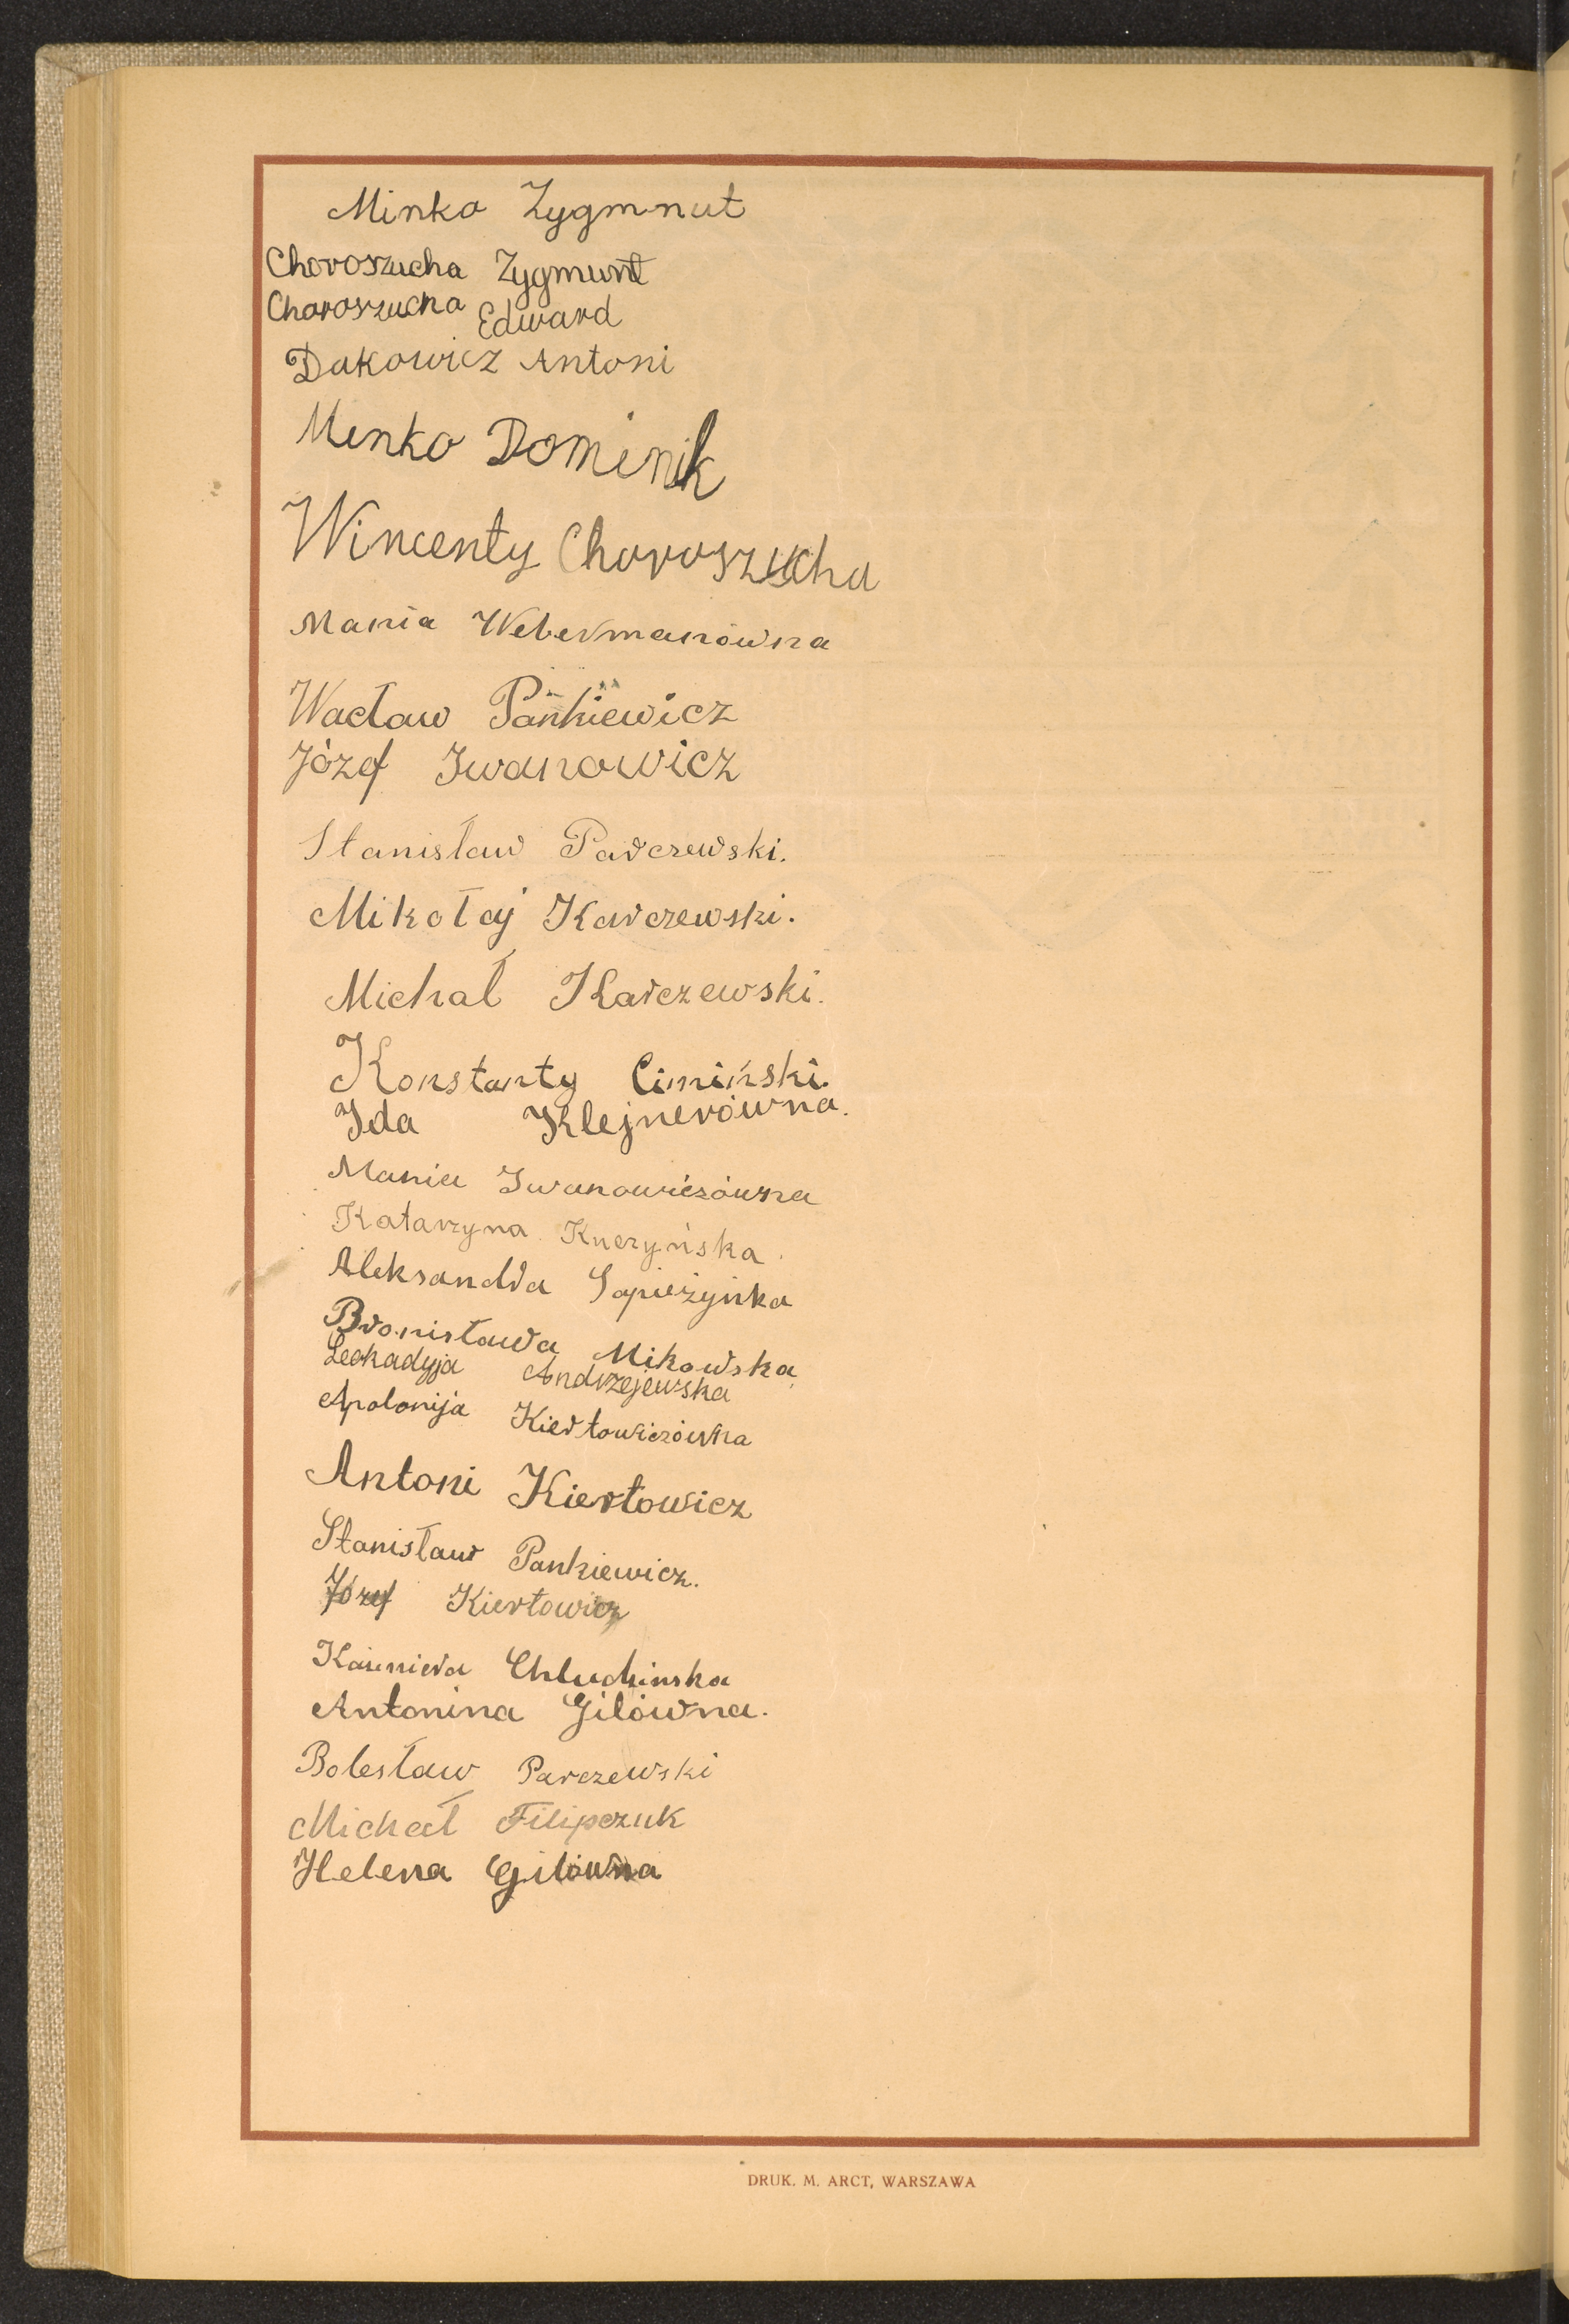 Minko Zygmnut
Choroszucha Zygmunt
Choroszucha Edward
Dakowicz Antoni
Minko Dominik
Wincenty Choroszucha
Mania Webermanówna
Wacław Pankiewicz
Józef Iwanowicz
Stanisław Parczewski.
Mikołaj Karczewski.
Michał Karczewski.
Konstanty Cimiński.
Ida Klejnerówna.
Mania Iwanowiczówna
Katarzyna Kuczyńska.
Aleksandra Sapieżyńka
Bronisława Mikowska
Leokadyja Andrzejewska
Apolonija Kiertowiczówna
Antoni Kiertowicz
Stanisław Pankiewicz.
Józef Kiertowicz
Kazimiera Chludzinska
Antonina Gilówna.
Bolesław Parczewski
Michał Filipczuk
Helena Gilówna
DRUK. M. ARCT, WARSZAWA